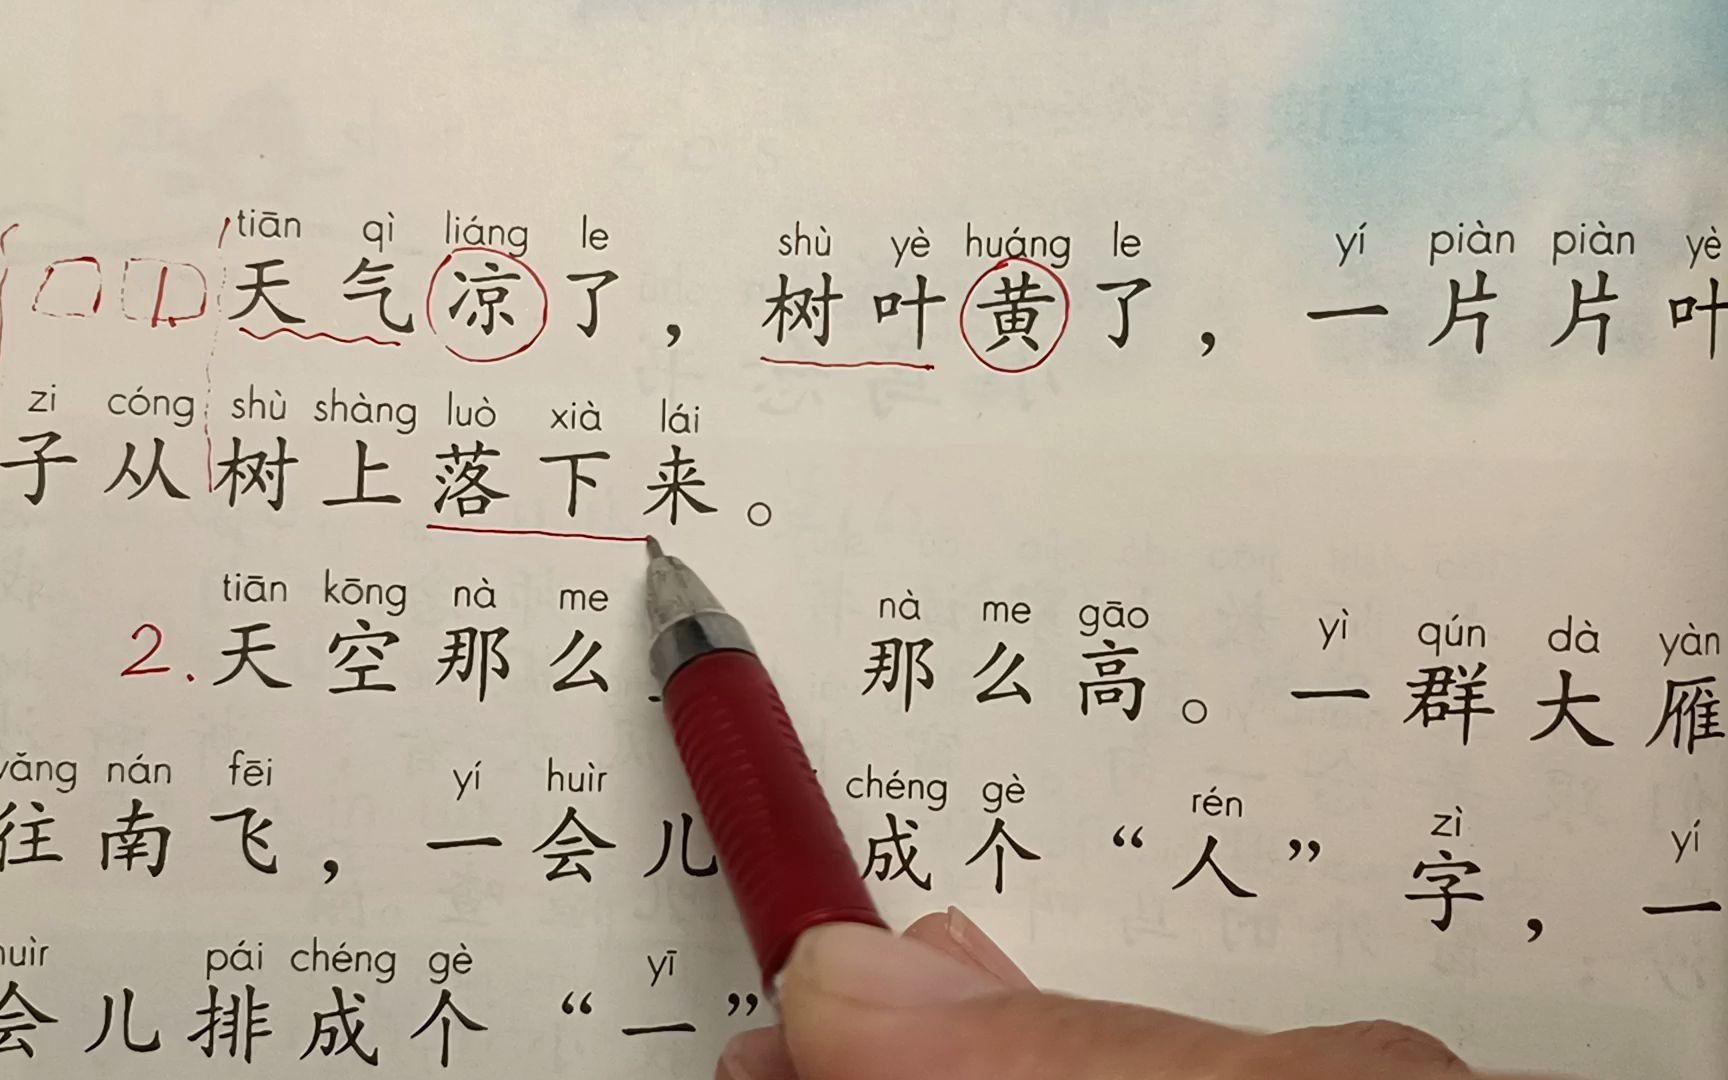 tiān qì liáng le shù yè huáng le yí piàn piàn yè
天气凉了，树叶黄了，一片片叶
zi cóng shù shàng luò xià lái
子从树上落下来。
tiān kōng nà me nà me gāo yì qún dà yàn
2.天空那么 那么高。一群大雁
wǎng nán fēi yí huìr chéng gè rén zì yí
往南飞，一会儿 成个“人”字，一
huìr pái chéng gè yī
会儿排成个“一”